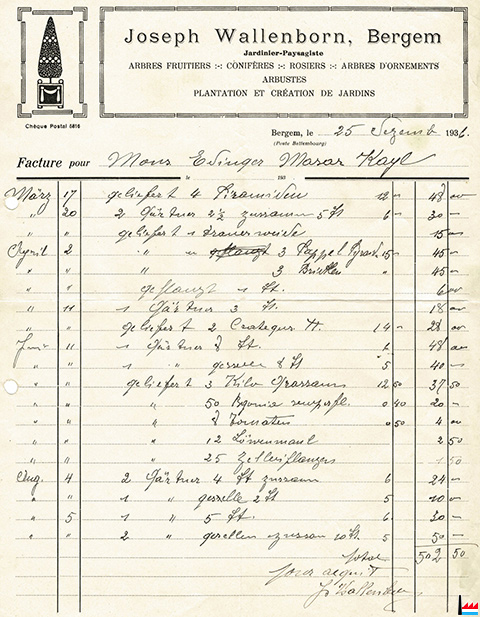 Joseph Wallenborn, Bergem
Jardinier-Paysagiste
ARBRES FRUITIERS :-: CONIFÈRES :-: ROSIERS :-: ARBRES D'ORNEMENTS
ARBUSTES
PLANTATION ET CRÉATION DE JARDINS
Chèque Postal 5816
Bergem, le 25 Dezemb 1936
(Poste Bettembourg)
Facture pour Mons Edinger Kayl
le 193
März 17 geliefert 4 Piramiden 12 48
" 20 2 Gärtner 2½ zusammen 5 St 6 30
" " geliefert 1 Trauerweide 15
April 2 " " 3 Pappel Pyramid 15 45
" " " 3 Birken " 45
" " gepflanzt 1 St. 6
" 11 1 Gärtner 3 St. 18
" " geliefert 2 Crategus H. 14 28
Juni 11 1 Gärtner 8 St 6 48
" " 1 " geselle 8 St 5 40
" " geliefert 3 Kilo Grassam 12 50 37 50
" " " 50 Begonie 0 40 20
" " " 8 Tomaten 0 50 4
" " " 12 Löwenmaul 2 50
" " " 25 Zelleriflanzen 1 50
Aug. 4 2 Gärtner 4 St zusam 6 24
" " 1 " geselle 2 St 5 10
" 5 1 " 5 St. 6 30
" " 2 " gesellen zusam 10 St. 5 50
Total 502 50
pour acquit